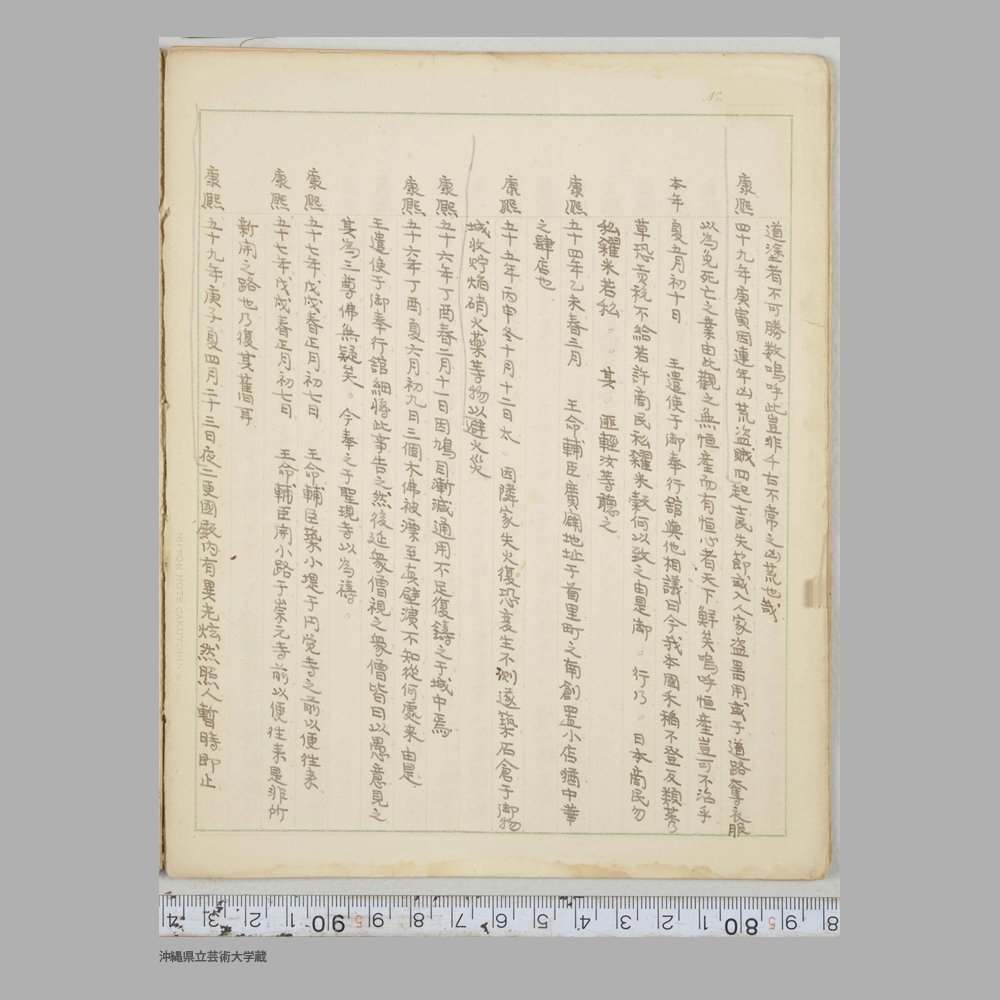 No.
道塗者不可勝数嗚呼此豈非千古不常之凶荒也哉
康熙四十九年庚寅因連年凶荒盗賊四起士民失節或入人家盗器用或于道路奪衣服
以為免死亡之業由此観之無恒産而有恒心者天下鮮矣嗚呼恒産豈可不治乎
本年夏五月初十日 王遣使于御奉行館與他相議曰今我本國禾稲不登及類莠
草恐貢税不給若許商民私糴米穀何以致之由是御。行乃。日本商民勿
私糴米若私。。其。匪軽汝等聴之
康熙五十四年乙未春三月 王命輔臣廣闢地址于首里町之南創置小店猶中華
之肆店也
康熙五十五年丙申冬十月十二日大。因隣家失火復恐変生不測遂築石倉于御物
城收貯焔硝火薬等物以避火災
康熙五十六年丁酉春二月十一日因鳩目漸減通用不足復鋳之于城中焉
康熙五十六年丁酉夏六月初九日三個木佛被漂至真壁濱不知從何處来由是
王遣使于御奉行館細将此事告之然後延衆僧視之衆僧皆曰以愚意見之
其為三尊佛無疑矣。今奉之于聖現寺以為祷。。
康熙五十七年戊戌春正月初七日 王命輔臣築小堤于円覚寺之前以便往来
康熙五十七年戊戌春正月初七日 王命輔臣開小路于崇元寺前以便往来是非所
新開之路也乃復其舊耳
康熙五十九年庚子夏四月二十三日夜三更國殿内有異光炫然照人暫時即止
NIPPON NOTE GAKUYOHIN
4 3 2 1 90 9 8 7 6 5 4 3 2 1 80 9 8
沖縄県立芸術大学蔵